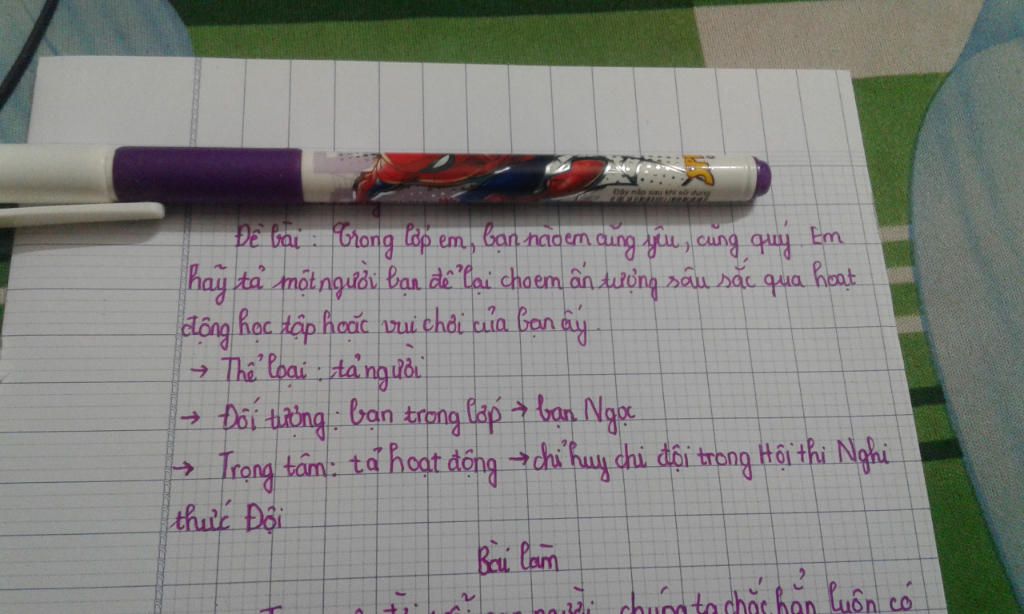 Đậy nắp sau khi sử dụng
Đề bài: Trong lớp em, bạn nào em cũng yêu, cũng quý. Em
hãy tả một người bạn để lại cho em ấn tượng sâu sắc qua hoạt
động học tập hoặc vui chơi của bạn ấy.
→ Thể loại: tả người
→ Đối tượng: bạn trong lớp → bạn Ngọc
→ Trọng tâm: tả hoạt động → chỉ huy chi đội trong Hội thi Nghi
thức Đội
Bài làm
chúng ta chắc hẳn luôn có